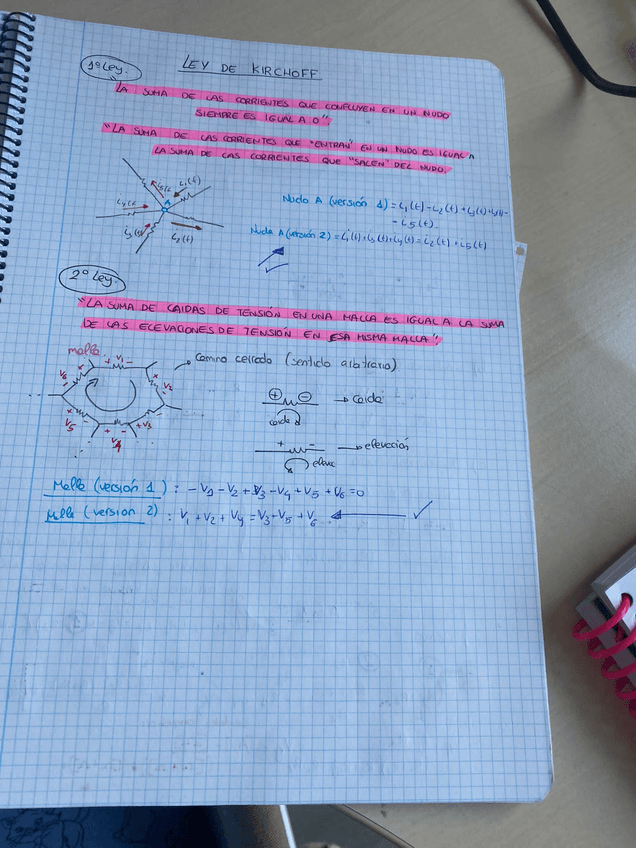 1º Ley.
LEY DE KIRCHOFF
LA SUMA DE LAS CORRIENTES QUE CONFLUYEN EN UN NUDO
SIEMPRE ES IGUAL A 0"
"LA SUMA DE LAS CORRIENTES QUE "ENTRAN" EN UN NUDO ES IGUAL A
LA SUMA DE LAS CORRIENTES QUE "SALEN" DEL NUDO.
i5(t) i1(t)
A
i4(t)
i3(t) i2(t)
Nudo A (versión 1) = i1(t) - i2(t) + i3(t) + i4(t) -
- i5(t).
Nudo A (versión 2) = i1(t) + i3(t) + i4(t) = i2(t) + i5(t)
2º Ley.
"LA SUMA DE CAIDAS DE TENSIÓN EN UNA MALLA ES IGUAL A LA SUMA
DE LAS ELEVACIONES DE TENSIÓN EN ESA MISMA MALLA."
malla
+ V1 -
V6
V2
V5
+ V4 -
V3
Camino cerrado (sentido arbitrario)
+ - → caida
caida
+ - → elevación
eleva
Malla (versión 1) : - V1 - V2 + V3 - V4 + V5 + V6 = 0
Malla (version 2) : V1 + V2 + V4 = V3 + V5 + V6